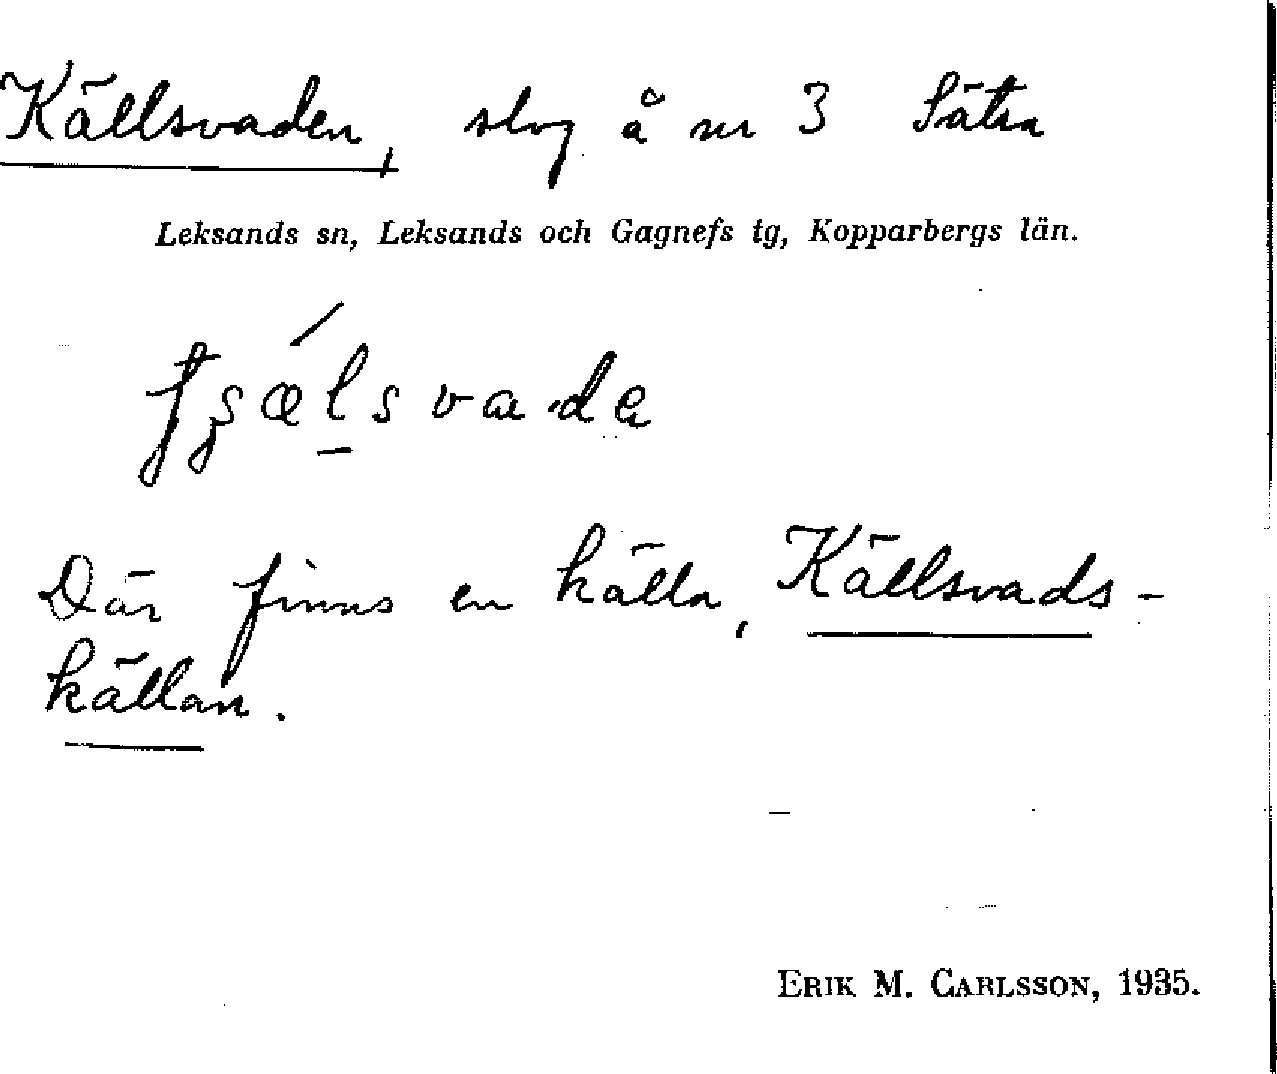 Källsvaden, slog å nr 3 Sätra
Leksands sn, Leksands och Gagnefs tg, Kopparbergs län.
Där finns en källa, Källsvads-
källan.
ERIK M. CARLSSON, 1935.